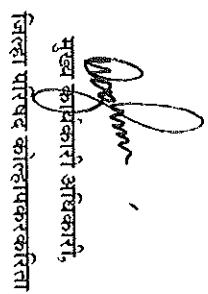 मुख्य कार्यकारी अधिकारी,
जिल्हा परिषद कोल्हापकरकरिता